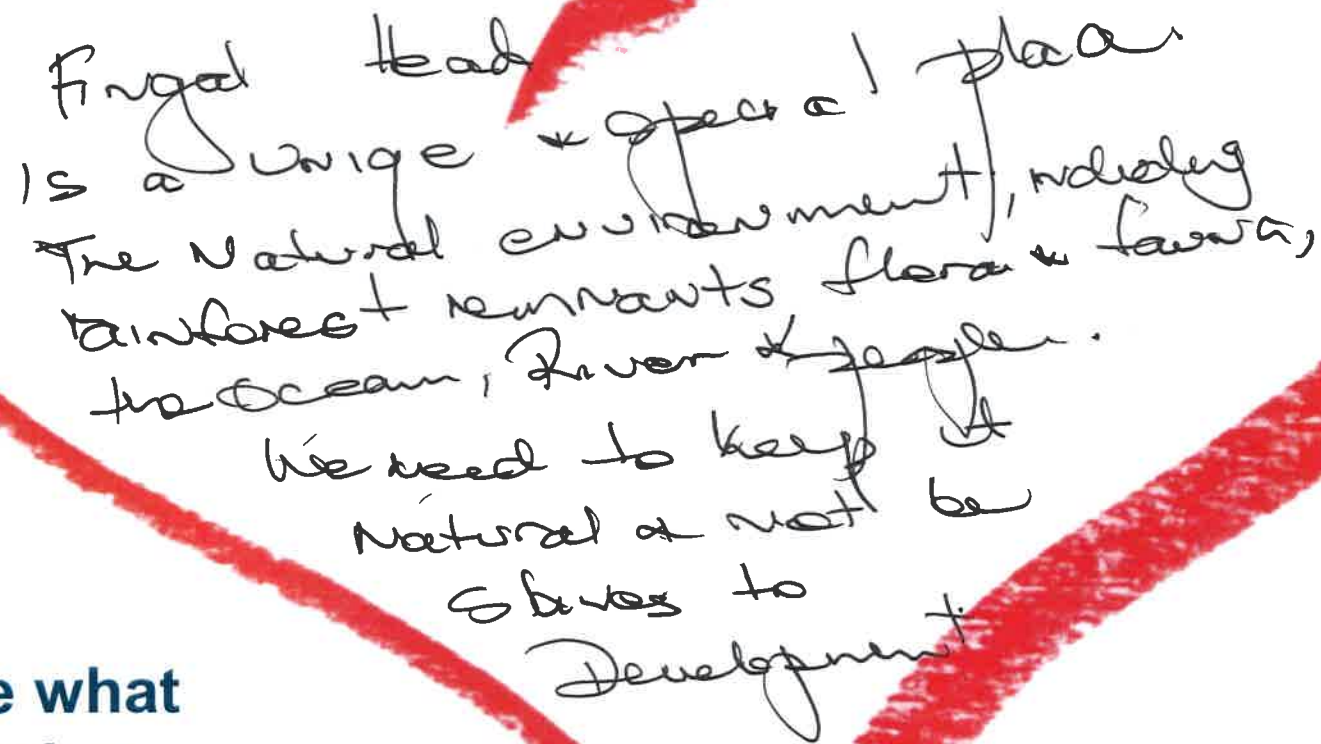 Fingal Head
is a uniqe & special place.
The Natural environment, including
rainforest remnants, flora & fauna,
the Ocean, River & people.
We need to keep it
Natural & not be
Slaves to
Development
e what